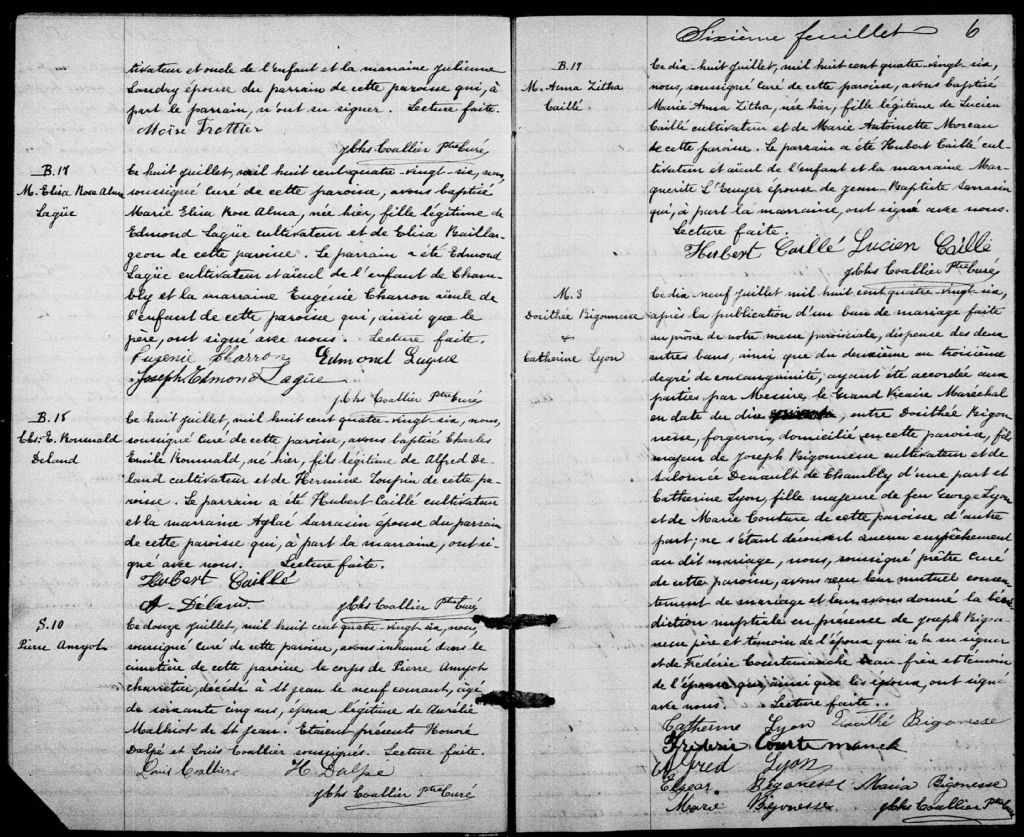 tivateur et oncle de l'enfant et la marraine Julienne
Landry épouse du parrain de cette paroisse qui, à
part le parrain, n'ont su signer. Lecture faite.
Moïse Trottier
J Chs Coallier Ptre Curé
B. 17
M. Elisa Rose Alma
Lagüe
Ce huit juillet, mil huit cent quatre-vingt-six, nous,
soussigné Curé de cette paroisse, avons baptisé
Marie Elisa Rose Alma, née hier, fille légitime de
Edmond Lagüe cultivateur et de Elisa Baillar-
geon de cette paroisse. Le parrain a été Edmond
Lagüe cultivateur et aïeul de l'enfant de Cham-
bly et la marraine Eugénie Charron aïeule de
l'enfant de cette paroisse qui, ainsi que le
père, ont signé avec nous. Lecture faite.
Eugenie Charron Edmond Lague
Joseph Edmond Lagüe
J Chs Coallier Ptre Curé
B. 18
Chs. E. Romuald
Deland
Ce huit juillet, mil huit cent quatre-vingt-six, nous,
soussigné Curé de cette paroisse, avons baptisé Charles
Emile Romuald, né hier, fils légitime de Alfred De-
land cultivateur et de Hermine Loupin de cette pa-
roisse. Le parrain a été Hubert Caillé cultivateur
et la marraine Aglaé Sarrasin épouse du parrain
de cette paroisse qui, à part la marraine, ont si-
gné avec nous. Lecture faite.
Hubert Caillé
A. Déland
J Chs Coallier Ptre Curé
S. 10
Pierre Amyot
Ce douze juillet, mil huit cent quatre-vingt-six, nous,
soussigné Curé de cette paroisse, avons inhumé dans le
cimetière de cette paroisse le corps de Pierre Amyot
charretier, décédé à St Jean le neuf courant, âgé
de soixante cinq ans, époux légitime de Aurélie
Malhiot de St Jean. Etaient présents Honoré
Dalpé et Louis Coallier soussignés. Lecture faite.
Louis Coallier H. Dalpé
J Chs Coallier Ptre Curé
Sixième feuillet 6
B. 19
M. Anna Zitha
Caillé
Ce dix-huit juillet, mil huit cent quatre-vingt-six,
nous, soussigné Curé de cette paroisse, avons baptisé
Marie Anna Zitha, née hier, fille légitime de Lucien
Caillé cultivateur et de Marie Antoinette Moreau
de cette paroisse. Le parrain a été Hubert Caillé cul-
tivateur et aïeul de l'enfant et la marraine Mar-
guerite L'Ecuyer épouse de Jean-Baptiste Sarrasin
qui, à part la marraine, ont signé avec nous.
Lecture faite.
Hubert Caillé Lucien Caillé
J Chs Coallier Ptre Curé
M. 3
Dosithée Bigonnesse
&
Catherine Lyon
Ce dix neuf juillet mil huit cent quatre-vingt-six,
après la publication d'un ban de mariage faite
au prône de notre messe paroissiale, dispense des deux
autres bans, ainsi que du deuxième au troisième
degré de consanguinité, ayant été accordée aux
parties par Messire le Grand Vicaire Maréchal
en date du dix, entre Dosithée Bigon-
nesse, forgeron, domicilié en cette paroisse, fils
majeur de Joseph Bigonnesse cultivateur et de
Salomée Denault de Chambly d'une part et
Catherine Lyon, fille majeure de feu George Lyon
et de Marie Couture de cette paroisse d'autre
part; ne s'étant découvert aucun empêchement
au dit mariage, nous, soussigné prêtre curé
de cette paroisse, avons reçu leur mutuel consen-
tement de mariage et leur avons donné la béné-
diction nuptiale en présence de Joseph Bigon-
nesse père et témoin de l'époux qui n'a su signer
et de Frédéric Courtemanche beau frère et témoin
de l'épouse qui, ainsi que les époux, ont signé
avec nous. Lecture faite.
Catherine Lyon Dosithé Bigonesse
Frédéric Courtemanch
Alfred Lyon
Elzear Bigonesse Maria Bigonesse
Marie Bigonesse J Chs Coallier Ptre Curé